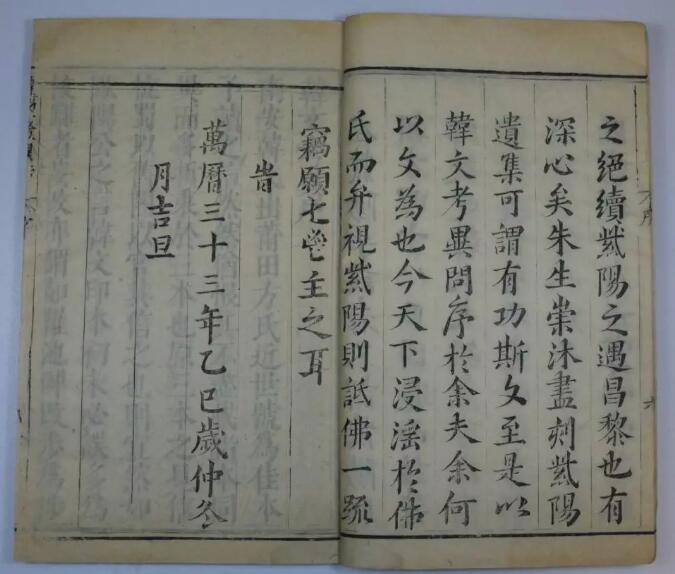 之絕續紫陽之遇昌黎也有
深心矣朱生崇沐盡刻紫陽
遺集可謂有功斯文至是以
韓文考異問序於余夫余何
以文為也今天下浸滛於佛
氏而弁視紫陽則詆佛一䟽
竊願匕鬯主之耳
旹
萬曆三十三年乙巳歲仲冬
月吉旦